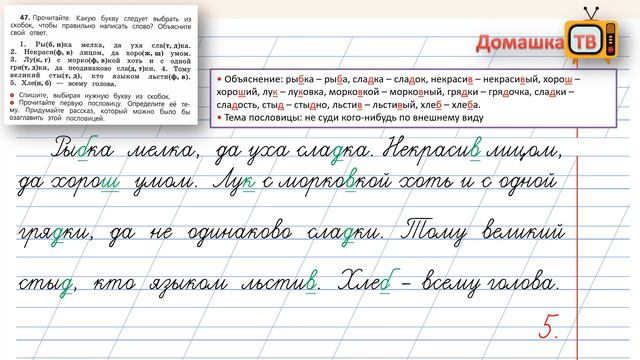 47. Прочитайте. Какую букву следует выбрать из
скобок, чтобы правильно написать слово? Объясните
свой ответ.
1. Ры(б, п)ка мелка, да уха сла(т, д)ка.
2. Некраси(ф, в) лицом, да хоро(ж, ш) умом.
3. Лу(к, г) с морко(ф, в)кой хоть и с одной
гря(т, д)ки, да неодинаково сла(д, т)ки. 4. Тому
великий сты(т, д), кто языком льсти(ф, в).
5. Хле(п, б) — всему голова.
• Спишите, выбирая нужную букву из скобок.
• Прочитайте первую пословицу. Определите её те-
му. Придумайте рассказ, который можно было бы
озаглавить этой пословицей.
Домашка ТВ
• Объяснение: рыбка – рыба, сладка – сладок, некрасив – некрасивый, хорош –
хороший, лук – луковка, морковкой – морковный, грядки – грядочка, сладки –
сладость, стыд – стыдно, льстив – льстивый, хлеб – хлеба.
• Тема пословицы: не суди кого-нибудь по внешнему виду
Рыбка мелка, да уха сладка. Некрасив лицом,
да хорош умом. Лук с морковкой хоть и с одной
грядки, да не одинаково сладки. Тому великий
стыд, кто языком льстив. Хлеб – всему голова.
5.